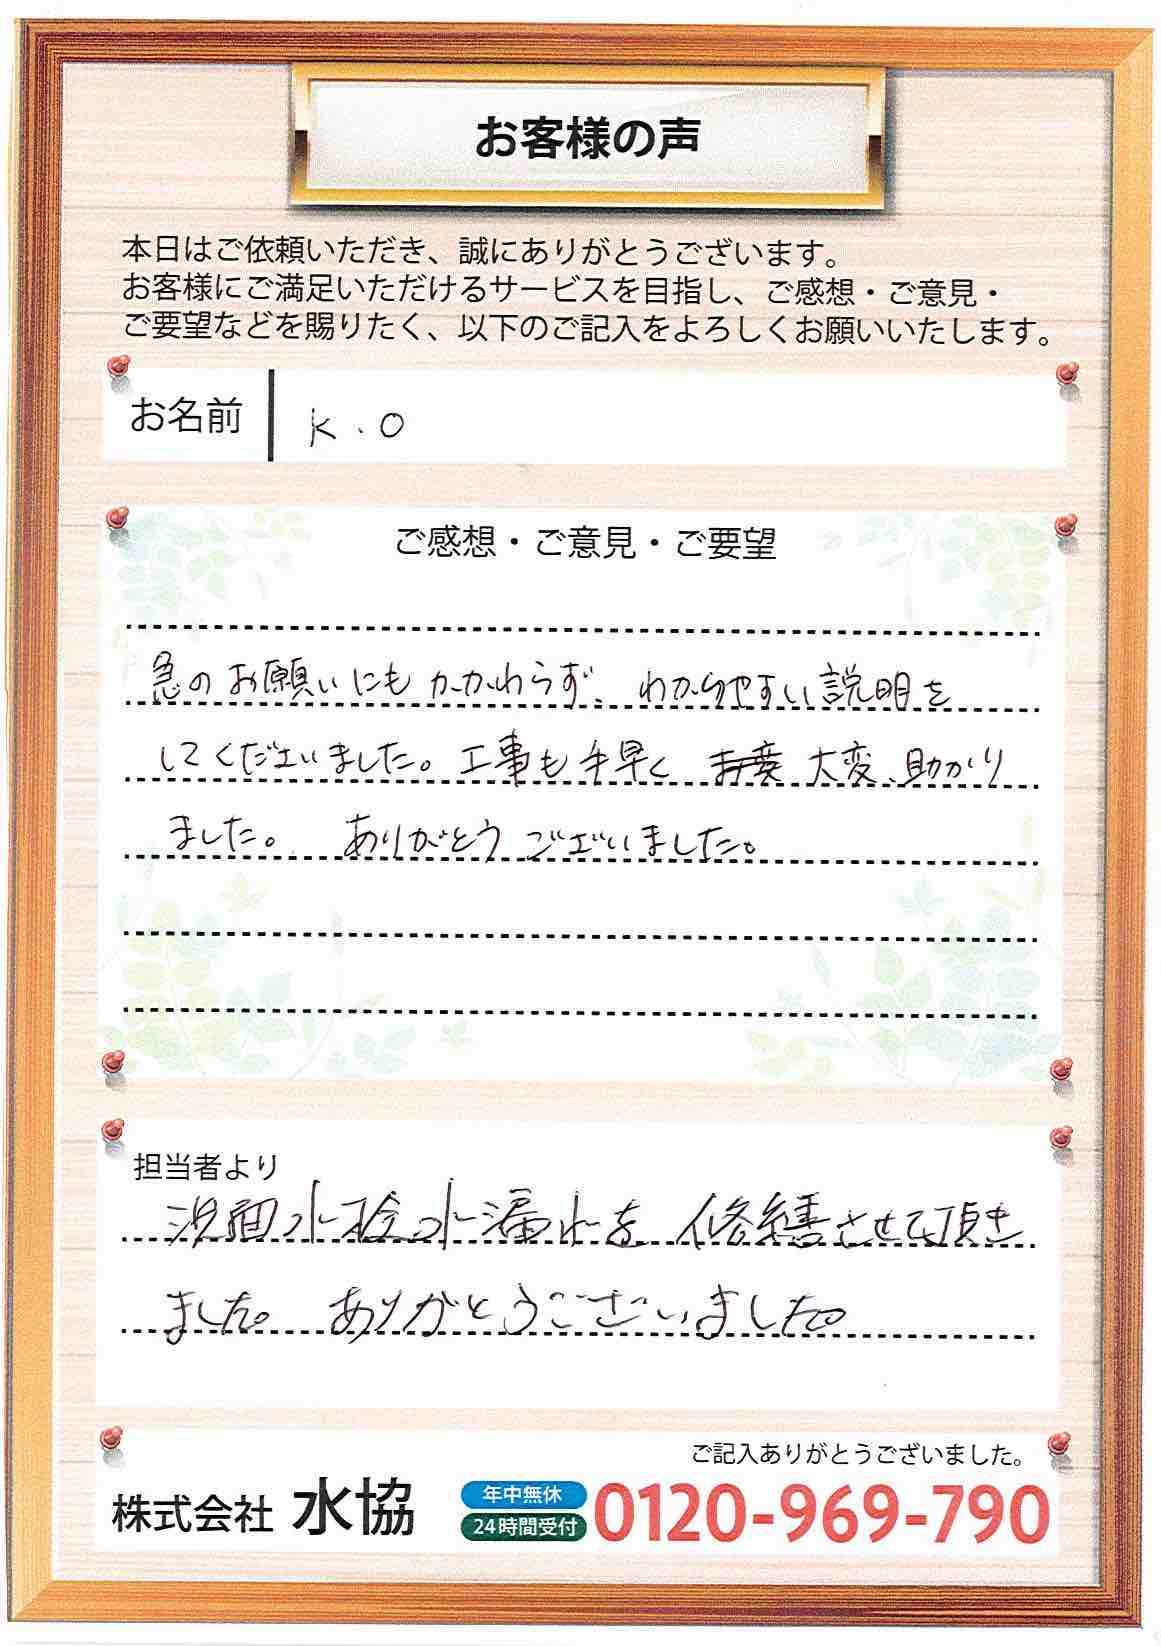 お客様の声
本日はご依頼いただき、誠にありがとうございます。
お客様にご満足いただけるサービスを目指し、ご感想・ご意見・
ご要望などを賜りたく、以下のご記入をよろしくお願いいたします。
お名前 K.O
ご感想・ご意見・ご要望
急のお願いにもかかわらず、わかりやすい説明を
してくださいました。工事も手早く 大変、助かり
ました。 ありがとうございました。
担当者より
洗面水栓水漏れを修繕させて頂き
ました。ありがとうございました。
ご記入ありがとうございました。
株式会社 水協 年中無休 24時間受付 0120-969-790